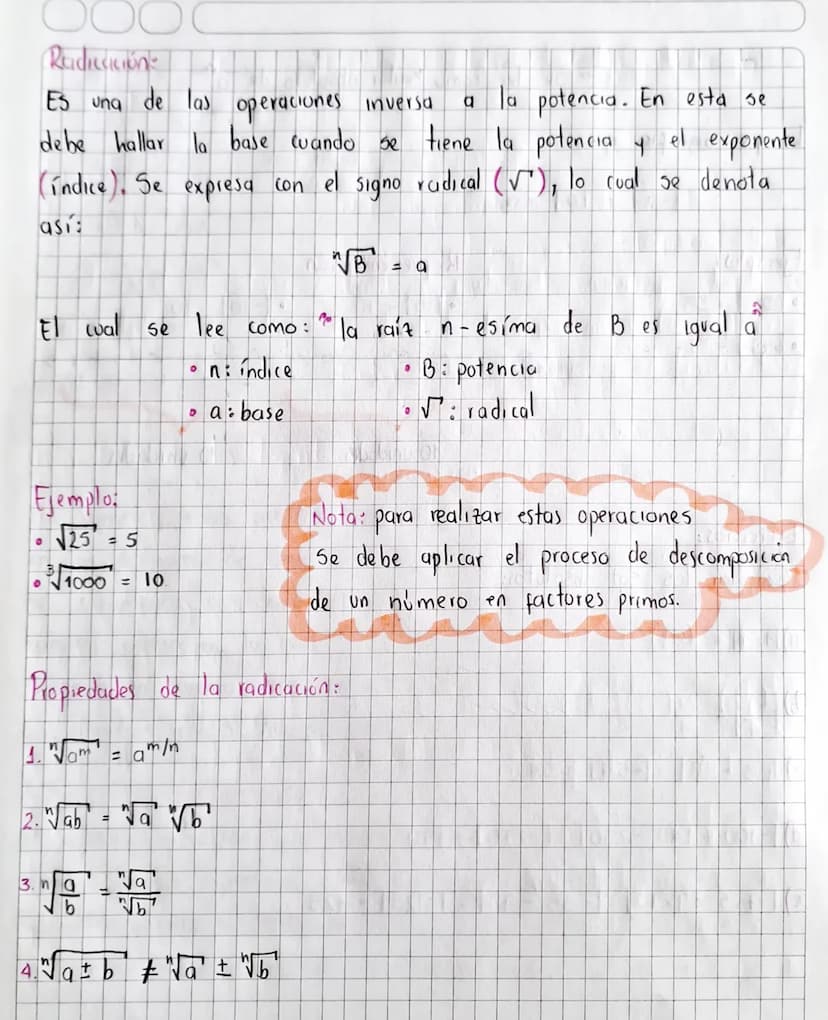 Radicación:
Es una de las operaciones inversa a la potencia. En esta se
debe hallar la base cuando se tiene la potencia y el exponente
(índice). Se expresa con el signo radical (√), lo cual se denota
así:
ⁿ√B = a
El cual se lee como: "la raíz n-esíma de B es igual a"
• n: índice • B: potencia
• a: base • √: radical
Ejemplo:
• √25 = 5
• ³√1000 = 10
Nota: para realizar estas operaciones
se debe aplicar el proceso de descomposición
de un número en factores primos.
Propiedades de la radicación:
1. ⁿ√aᵐ = a^m/n
2. ⁿ√ab = ⁿ√a ⁿ√b
3. ⁿ√(a/b) = ⁿ√a / ⁿ√b
4. ⁿ√(a ± b) ≠ ⁿ√a ± ⁿ√b